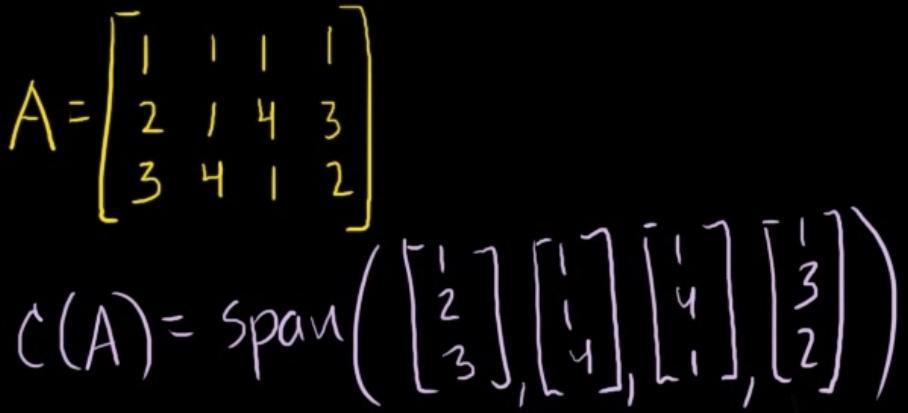 A = [1 1 1 1
2 1 4 3
3 4 1 2]
C(A) = span([1 2 3], [1 1 4], [1 4 1], [1 3 2])